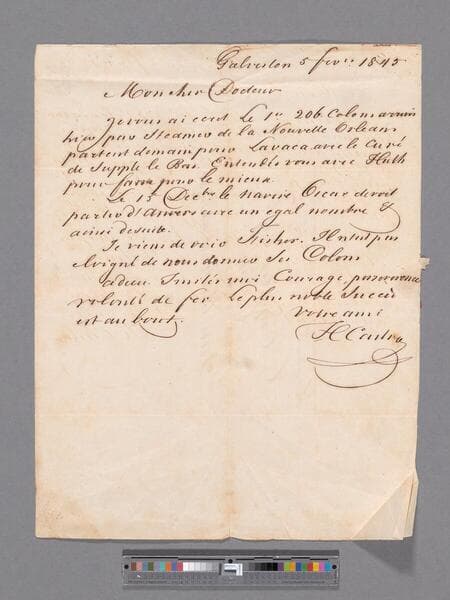 Galveston 5 fevr. 1845
Mon cher Docteur
Je vous ai ecrit le 1er 206 Colons arrivés
hier par Steamer de la Nouvelle Orleans
partent demain pour Lavaca avec le Curé
de Supple le Bas. Entendez vous avec Huth
pour faire pour le mieux.
Le 15 Decbre le navire Oscar devoit
partir d'Anvers avec un egal nombre &
ainsi de suite.
Je viens de voir Fisher. Il n'est pas
éloigné de nous donner ses Colons
adieu Imités moi Courage, perseverance
volonté de fer le plus noble Succès
est au bout.
Votre ami
H Castro